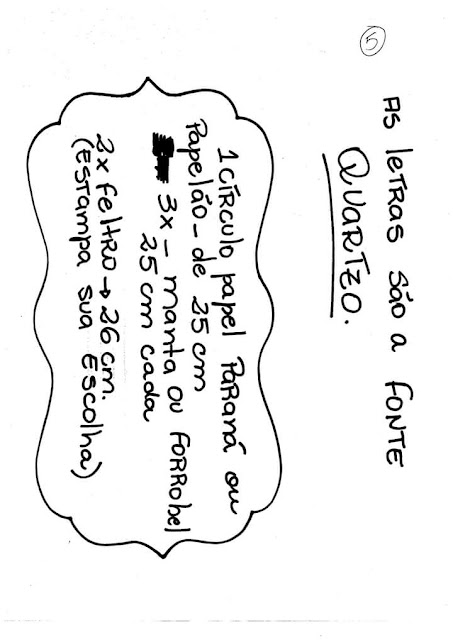 5
As letras são a fonte
Quartzo.
1 círculo papel Paraná ou
Papelão - de 25 cm
3x - manta ou Forrobel
25 cm cada
2x feltro → 26 cm.
(Estampa sua Escolha)